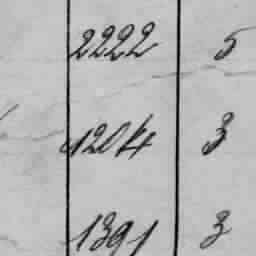 2222 5
1204 3
1391 3